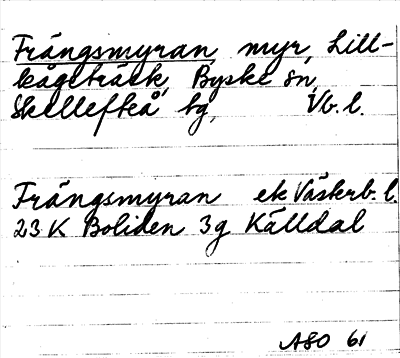 Frängsmyran, myr, Lill-
kågeträsk, Byske sn,
Skellefteå tg, Vb. l.
Frängsmyran ek Västerb. l.
23 K Boliden 3g Källdal
ASO 61